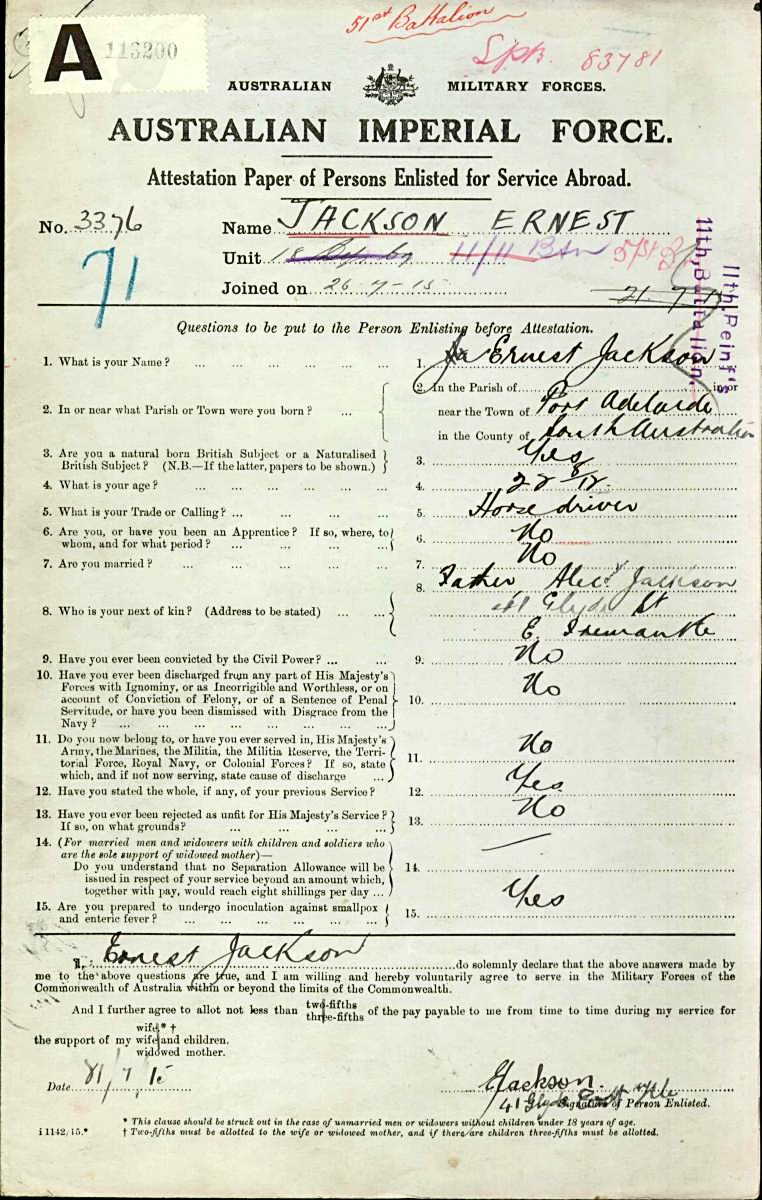 51st Battalion
A 113200
83781
AUSTRALIAN MILITARY FORCES.
AUSTRALIAN IMPERIAL FORCE.
Attestation Paper of Persons Enlisted for Service Abroad.
No. 3376 Name JACKSON ERNEST
71
Unit 11/11 Btn 51st B
Joined on 26-7-15
11th Reinf's
11th, Battalion.
Questions to be put to the Person Enlisting before Attestation.
1. What is your Name? ... 1. Ernest Jackson
2. In or near what Parish or Town were you born? ... 2. In the Parish of in or
near the Town of Port Adelaide
in the County of South Australia
3. Are you a natural born British Subject or a Naturalised
British Subject? (N.B.—If the latter, papers to be shown.) 3. Yes
4. What is your age? ... 4. 22 8/12
5. What is your Trade or Calling? ... 5. Horse driver
6. Are you, or have you been an Apprentice? If so, where, to
whom, and for what period? ... 6. No
7. Are you married? ... 7. No
8. Who is your next of kin? (Address to be stated) ... 8. Father Alec. Jackson
41 Glyde St
E. Fremantle
9. Have you ever been convicted by the Civil Power? ... 9. No
10. Have you ever been discharged from any part of His Majesty's
Forces with Ignominy, or as Incorrigible and Worthless, or on
account of Conviction of Felony, or of a Sentence of Penal
Servitude, or have you been dismissed with Disgrace from the
Navy? ... 10. No
11. Do you now belong to, or have you ever served in, His Majesty's
Army, the Marines, the Militia, the Militia Reserve, the Terri-
torial Force, Royal Navy, or Colonial Forces? If so, state
which, and if not now serving, state cause of discharge ... 11. No
12. Have you stated the whole, if any, of your previous Service? 12. Yes
13. Have you ever been rejected as unfit for His Majesty's Service?
If so, on what grounds? ... 13. No
14. (For married men and widowers with children and soldiers who
are the sole support of widowed mother)—
Do you understand that no Separation Allowance will be
issued in respect of your service beyond an amount which,
together with pay, would reach eight shillings per day ... 14. —
15. Are you prepared to undergo inoculation against smallpox
and enteric fever? ... 15. Yes
I, Ernest Jackson do solemnly declare that the above answers made by
me to the above questions are true, and I am willing and hereby voluntarily agree to serve in the Military Forces of the
Commonwealth of Australia within or beyond the limits of the Commonwealth.
And I further agree to allot not less than two-fifths three-fifths of the pay payable to me from time to time during my service for
wife* †
the support of my wife and children.
widowed mother.
Date 21/7/15
E Jackson.
41 Glyde
Signature of Person Enlisted.
* This clause should be struck out in the case of unmarried men or widowers without children under 18 years of age.
i 1142/15.* † Two-fifths must be allotted to the wife or widowed mother, and if there are children three-fifths must be allotted.